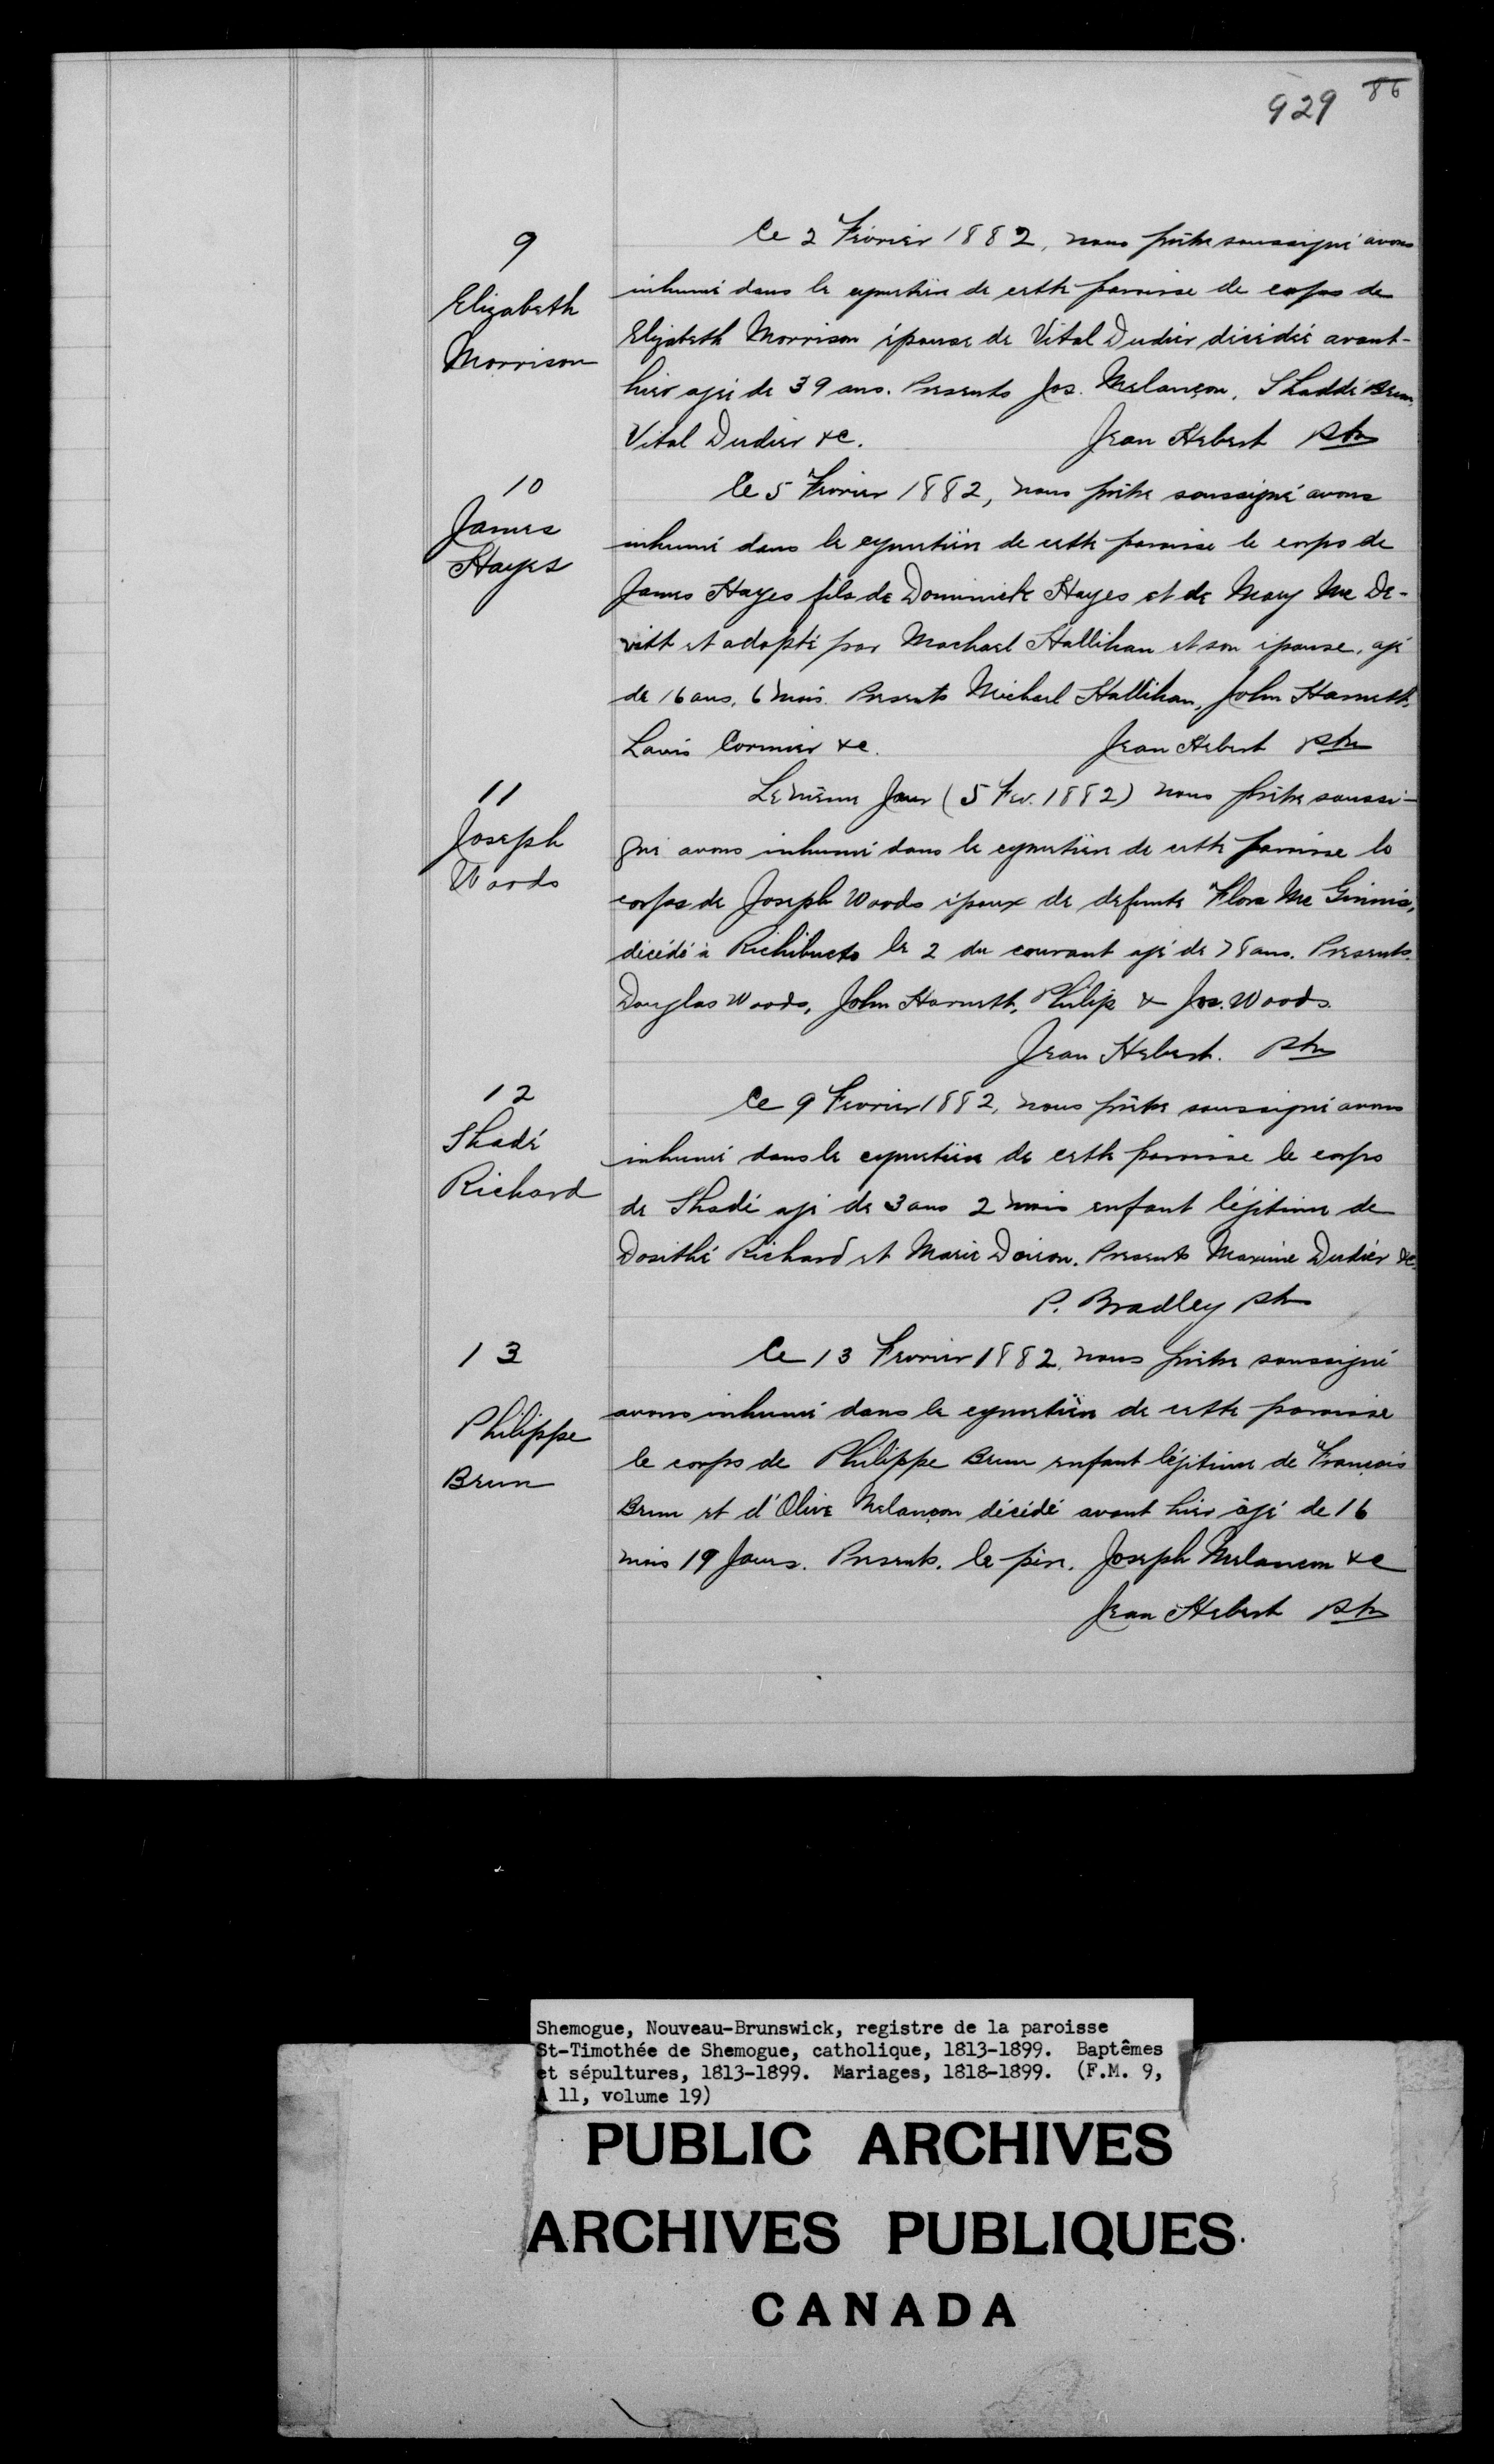 929 86
9
Elizabeth
Morrison
Ce 2 Février 1882, nous prêtre soussigné avons
inhumé dans le cymetière de cette paroisse de corps de
Elizabeth Morrison épouse de Vital Dudier décédée avant-
hier agée de 39 ans. Presents Jos. Melançon, Thaddé Brun,
Vital Dudier &c. Jean Hebert Ptre
10
James
Hayes
Ce 5 Fevrier 1882, nous prêtre soussigné avons
inhumé dans le cymetière de cette paroisse le corps de
James Hayes fils de Dominick Hayes et de Mary Mc De-
vitt et adopté par Machael Hallihan et son épouse, agé
de 16 ans, 6 mois. Presents Michael Hallihan, John Harnett,
Louis Cormier &c. Jean Hebert Ptre
11
Joseph
Woods
Le même Jour (5 Fev. 1882) nous prêtre soussi-
gné avons inhumé dans le cymetière de cette paroisse le
corps de Joseph Woods époux de defunte Flora Mc Ginnis,
décédé à Richibucto le 2 du courant agé de 78 ans. Presents.
Douglas Woods, John Harnett, Philip & Jos. Woods.
Jean Hebert. Ptre
12
Thadé
Richard
Ce 9 Fevrier 1882, nous prêtre soussigné avons
inhumé dans le cymetière de cette paroisse le corps
de Thadé agé de 3 ans 2 mois enfant légitime de
Dosithé Richard et Marie Doiron. Presents Maxime Dudier &c.
P. Bradley Ptre
13
Philippe
Brun
Ce 13 Fevrier 1882, nous prêtre soussigné
avons inhumé dans le cymetière de cette paroisse
le corps de Philippe Brun enfant légitime de François
Brun et d'Olive Melançon décédé avant hier âgé de 16
mois 19 Jours. Presents. le père. Joseph Melancon &c
Jean Hebert Ptre
Shemogue, Nouveau-Brunswick, registre de la paroisse
St-Timothée de Shemogue, catholique, 1813-1899. Baptêmes
et sépultures, 1813-1899. Mariages, 1818-1899. (F.M. 9,
A 11, volume 19)
PUBLIC ARCHIVES
ARCHIVES PUBLIQUES
CANADA